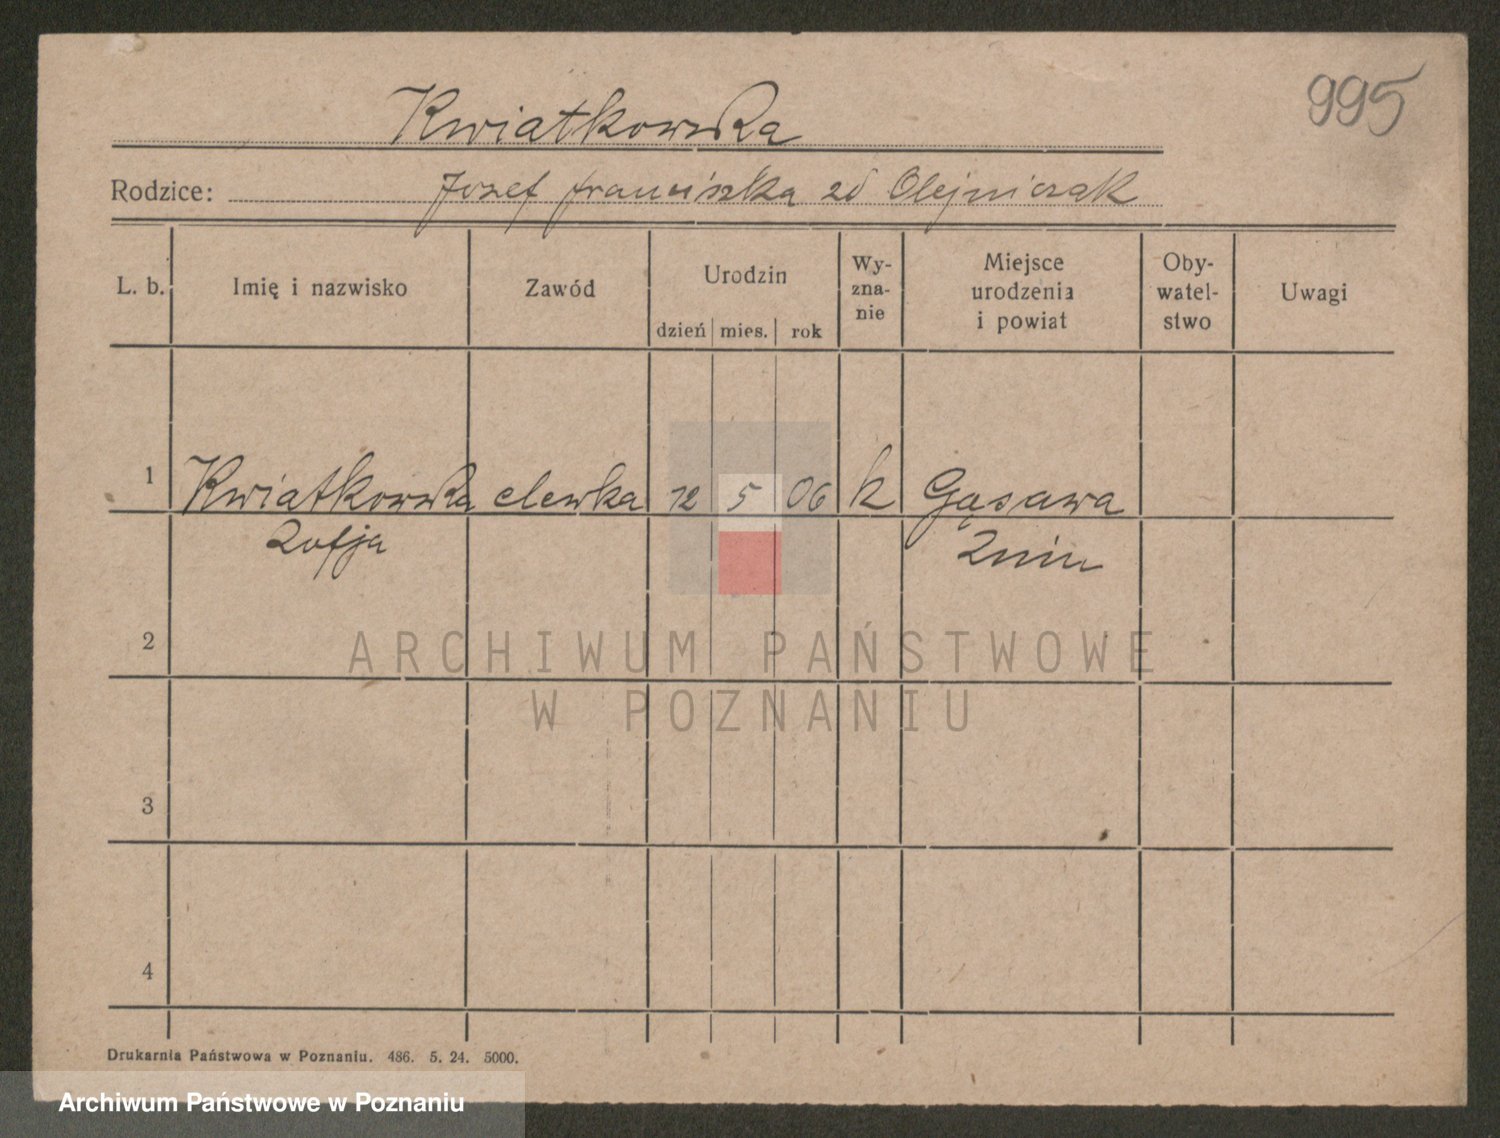 995
Kwiatkowska
Rodzice: Jozef Franciszka zd Olejniczak
L. b. Imię i nazwisko Zawód Urodzin dzień mies. rok Wy-zna-nie Miejsce urodzenia i powiat Oby-watel-stwo Uwagi
1 Kwiatkowska elewka 12 5 06 k Gąsawa
Zofja Żnin
2
ARCHIWUM PAŃSTWOWE
W POZNANIU
3
4
Drukarnia Państwowa w Poznaniu. 486. 5. 24. 5000.
Archiwum Państwowe w Poznaniu